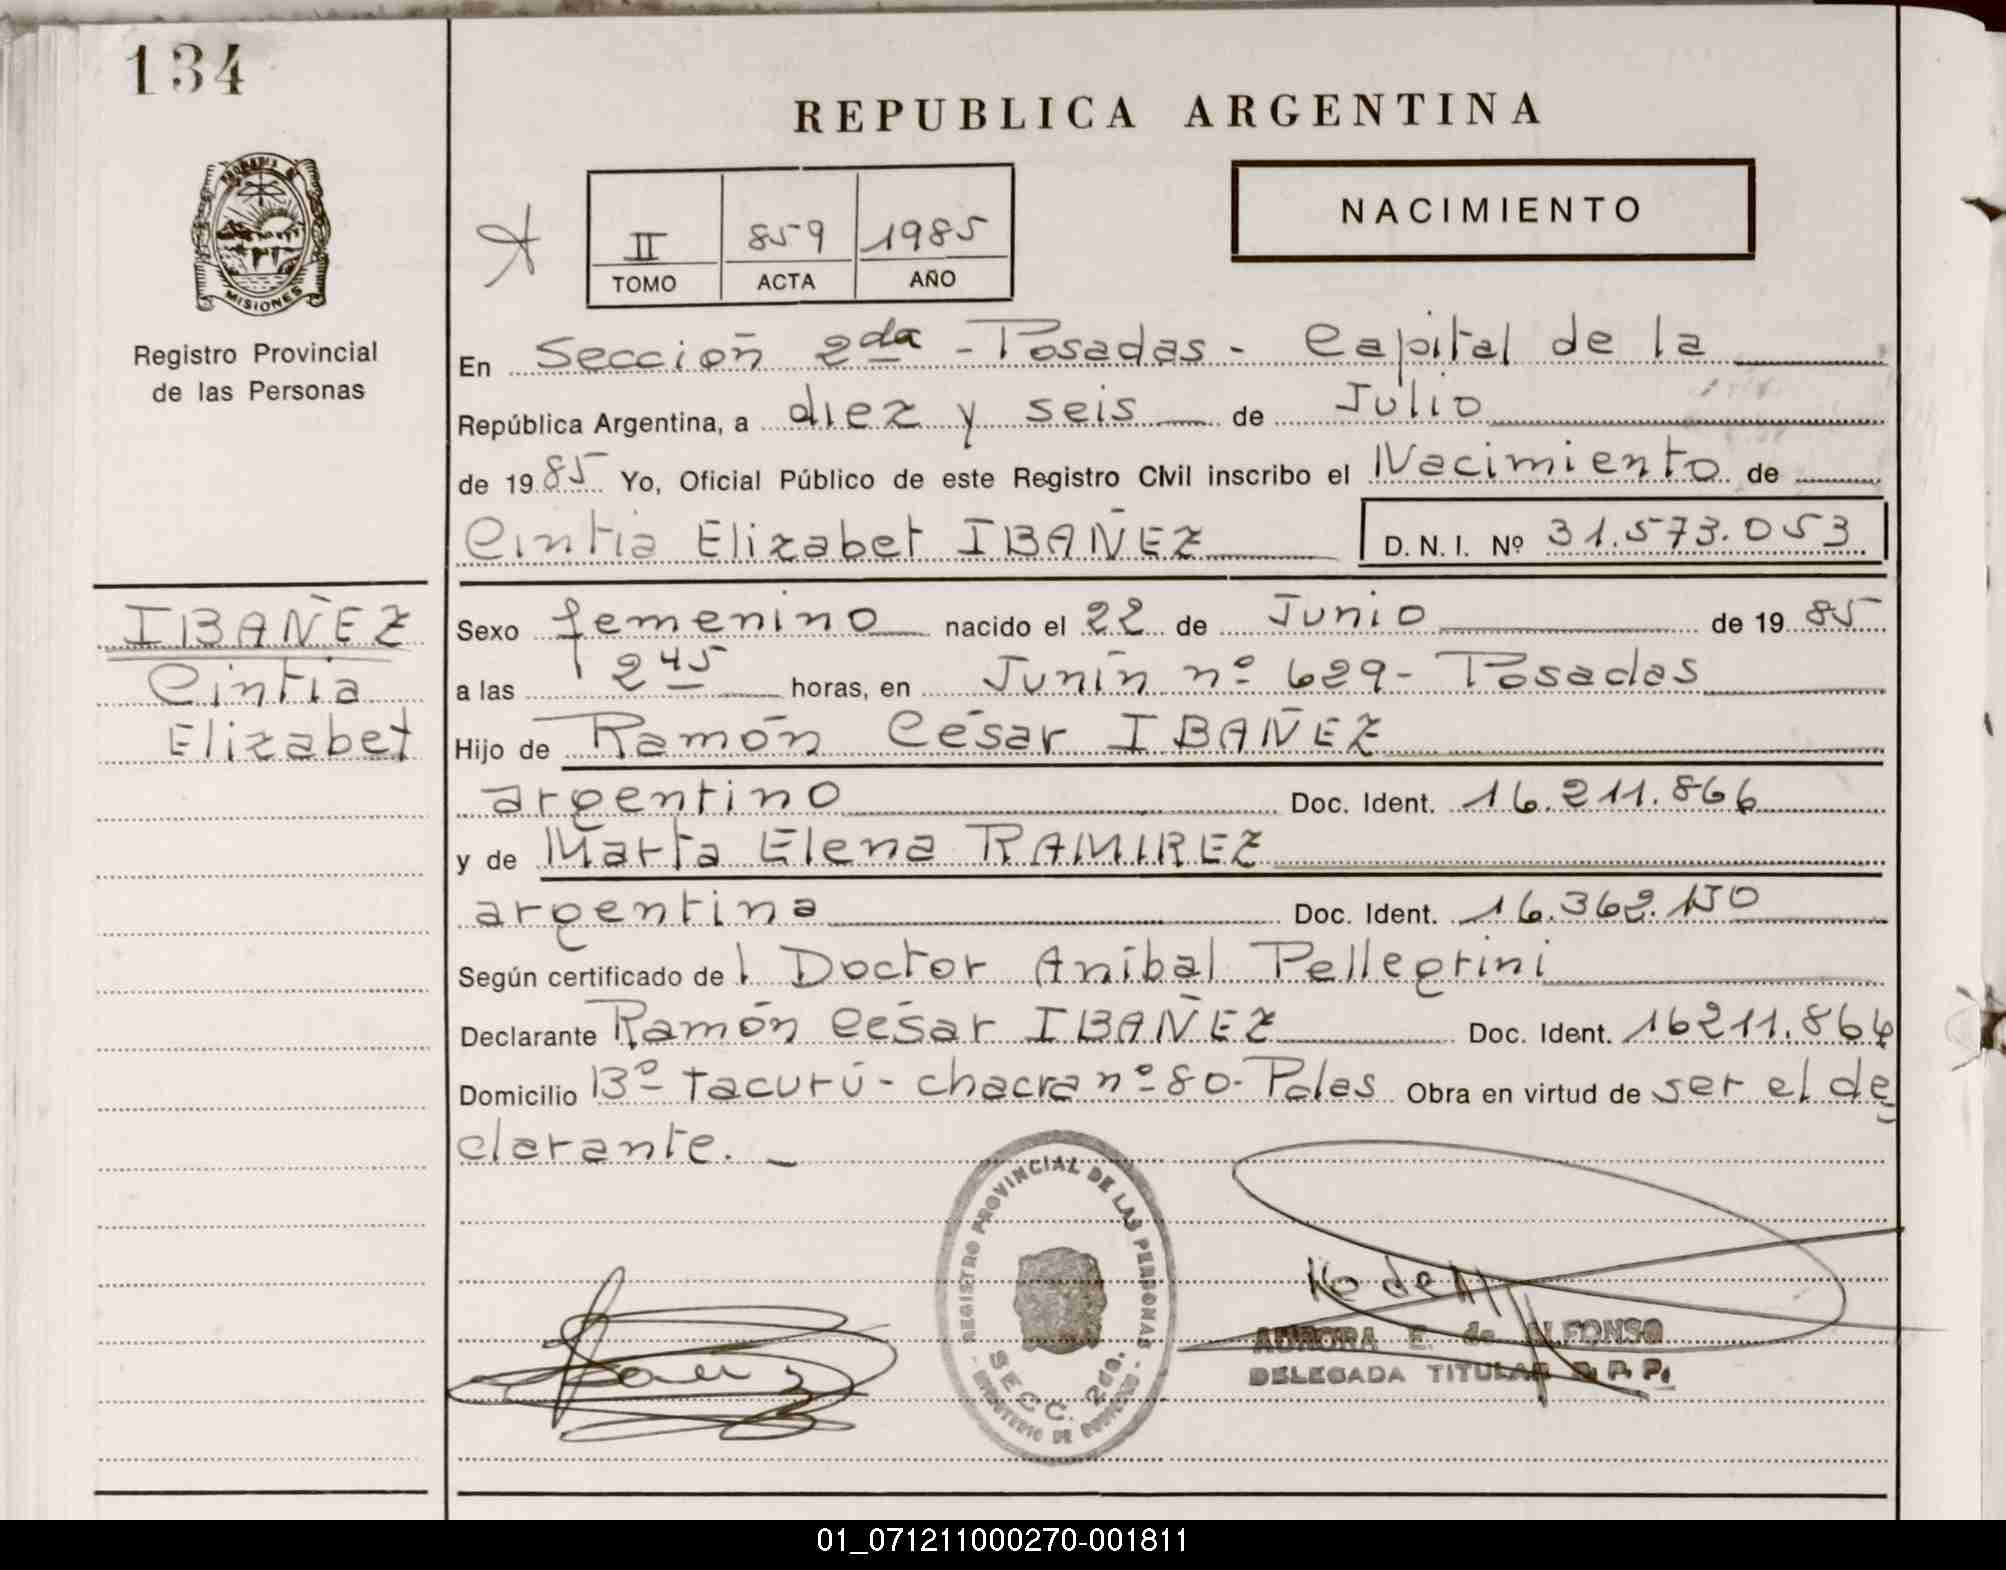 134
REPUBLICA ARGENTINA
MISIONES
Registro Provincial
de las Personas
II 859 1985
TOMO ACTA AÑO
NACIMIENTO
En Sección 2da - Posadas - Capital de la
República Argentina, a diez y seis de Julio
de 1985 Yo, Oficial Público de este Registro Civil inscribo el Nacimiento de
Cintia Elizabet IBAÑEZ D.N.I. Nº 31.573.053
IBAÑEZ
Cintia
Elizabet
Sexo femenino nacido el 22 de Junio de 1985
a las 2 45 horas, en Junín nº 629 - Posadas
Hijo de Ramón César IBAÑEZ
argentino Doc. Ident. 16.211.866
y de Marta Elena RAMIREZ
argentina Doc. Ident. 16.362.150
Según certificado del Doctor Aníbal Pellegrini
Declarante Ramón César IBAÑEZ Doc. Ident. 16211.866
Domicilio Bº Tacurú - chacra nº 80 - Pdas Obra en virtud de ser el de
clarante. -
REGISTRO PROVINCIAL DE LAS PERSONAS
SECC. 2da.
AURORA E. de ALFONSO
DELEGADA TITULAR R. P. P.
01_071211000270-001811